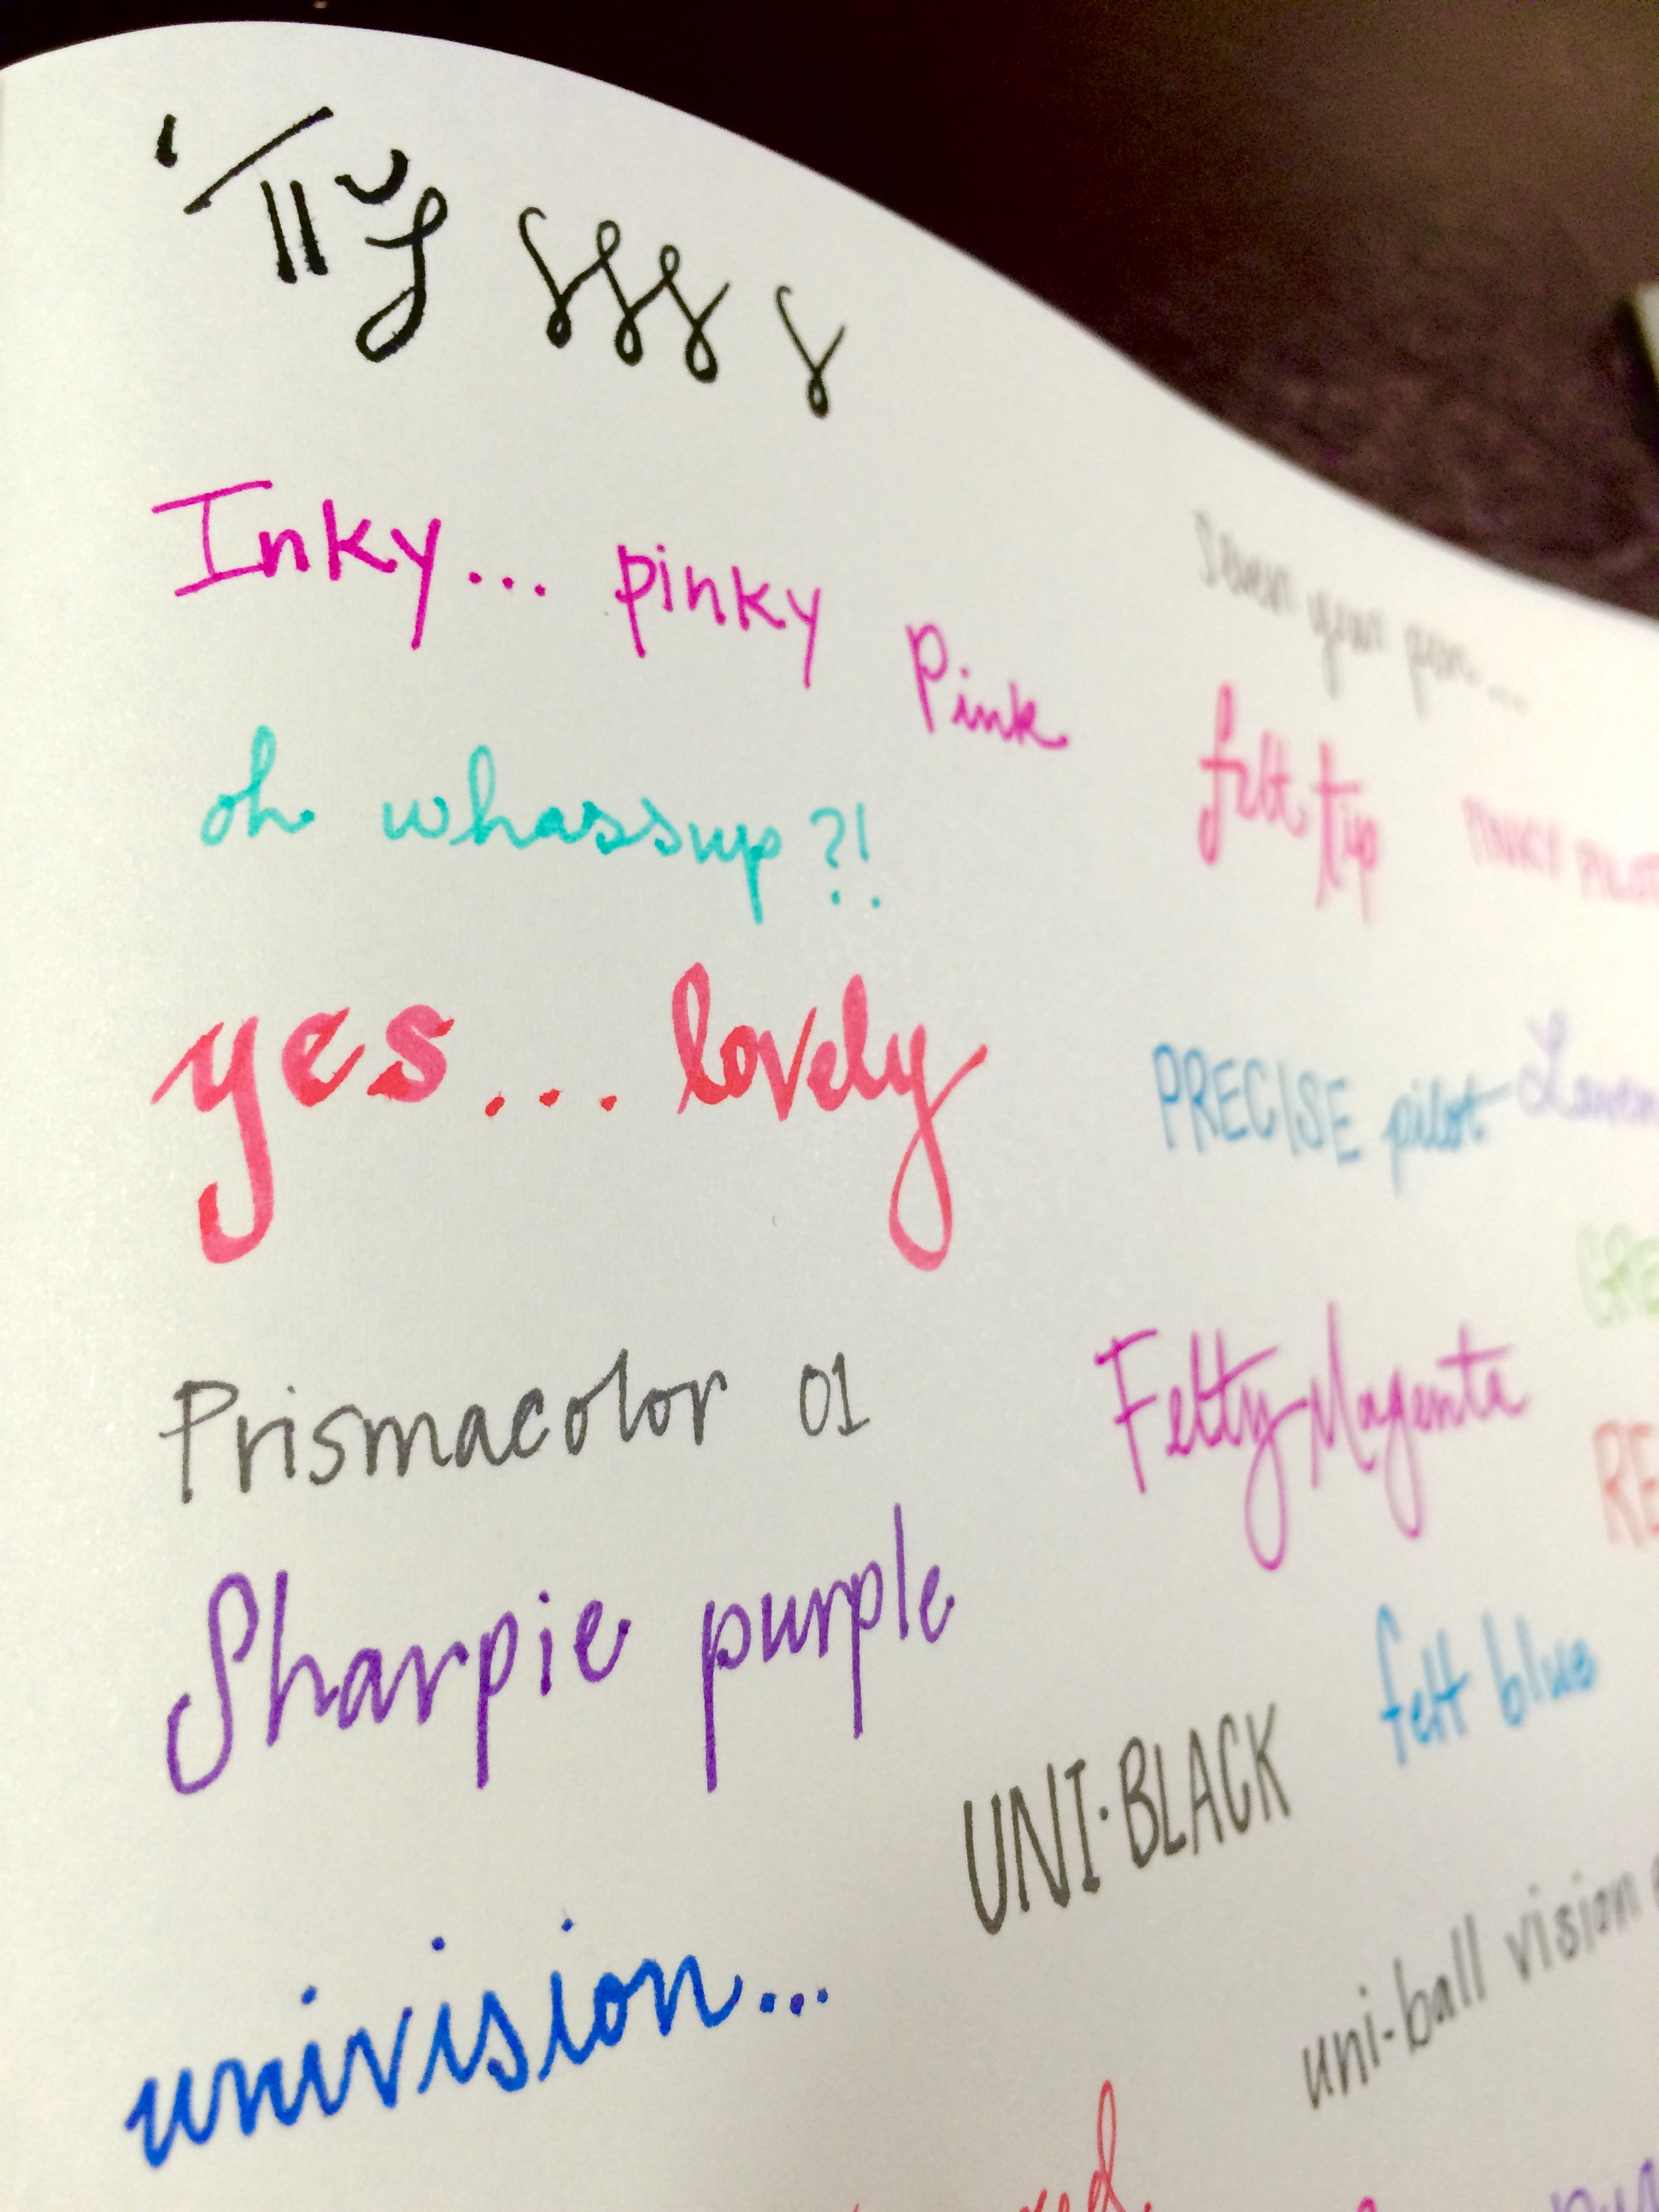 Inky... pinky Pink
oh whassup?!
yes... lovely
Prismacolor 01
Sharpie purple
univision...
your pen...
felt tip
PINKY PILOT
PRECISE pilot
Felty Magenta
felt blue
UNI·BLACK
uni-ball vision